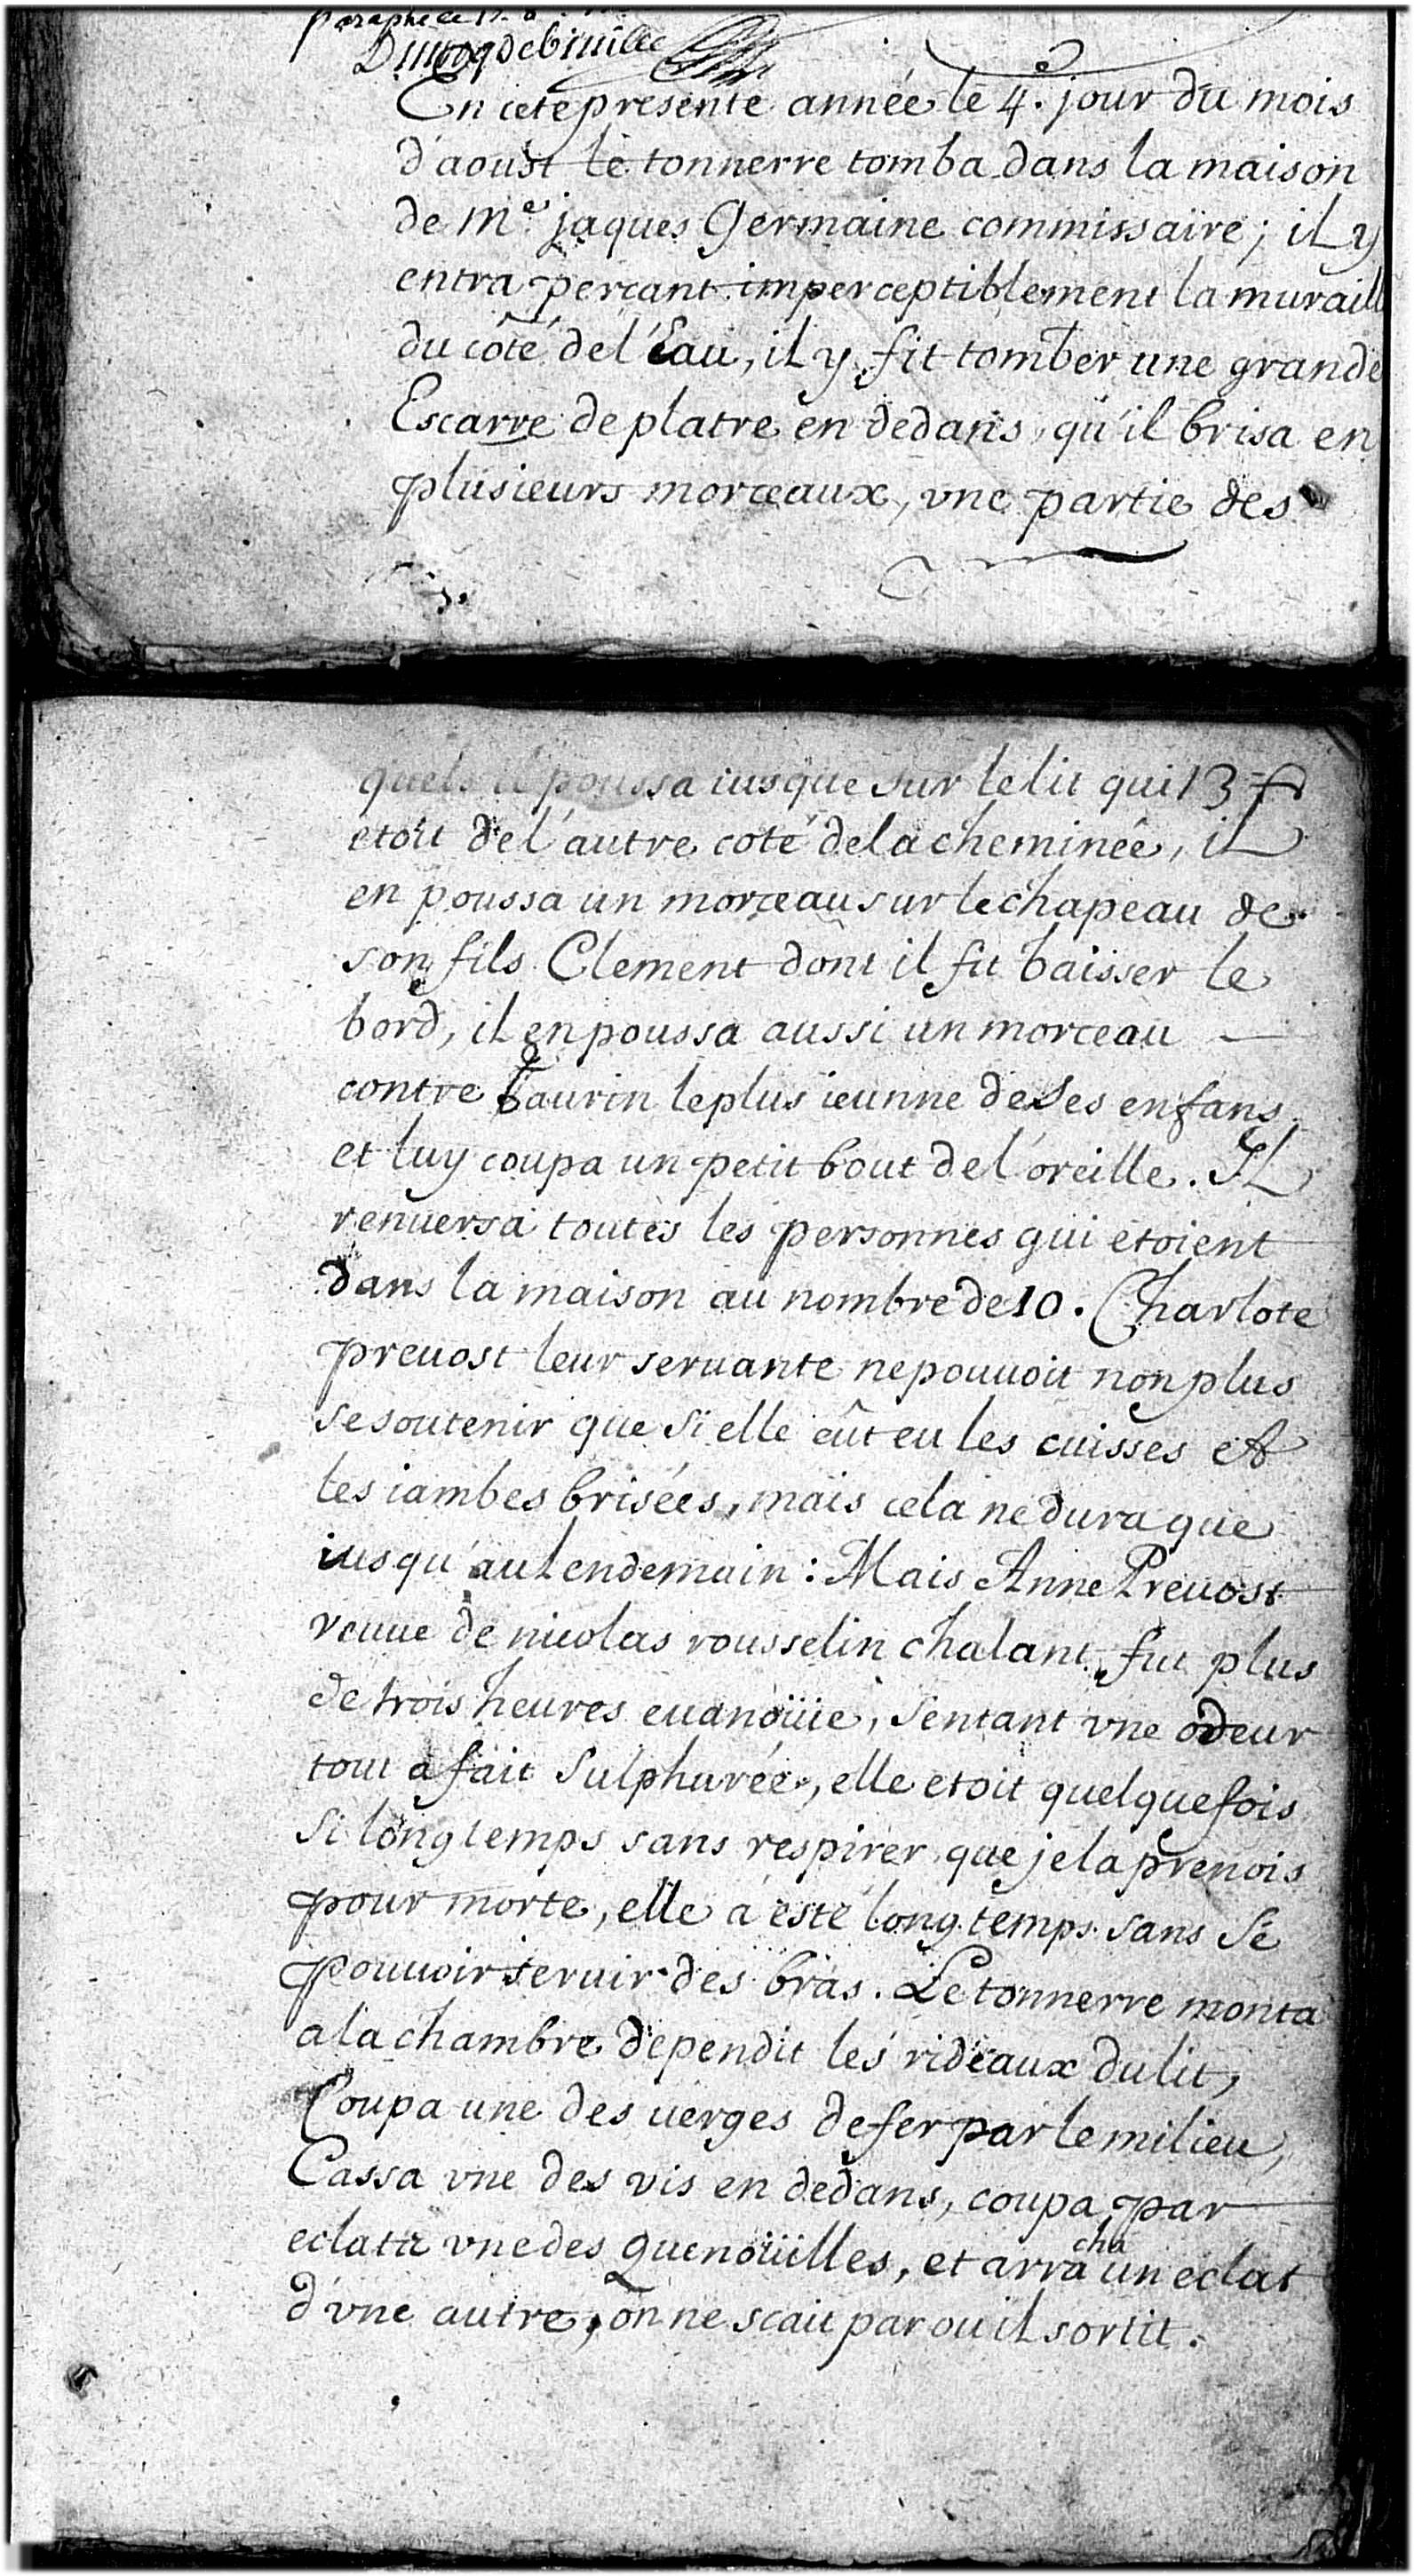 paraphé ce
En cete presente année le 4. jour du mois
d'aoust le tonnerre tomba dans la maison
de Me. jaques Germaine commissaire; il y
entra percant imperceptiblement la muraill
du côté de l'Eau, il y fit tomber une grande
Escarre de platre en dedans, qu'il brisa en
plusieurs morceaux, vne partie des
quels il poussa iusque sur le lit qui 13
etoit de l'autre coté de la cheminée, il
en poussa un morceau sur le chapeau de
son fils Clement dont il fit baisser le
bord, il en poussa aussi un morceau
contre Taurin le plus ieunne de ses enfans
et luy coupa un petit bout de l'oreille. Il
renuersa toutes les personnes qui etoient
dans la maison au nombre de 10. Charlote
preuost leur seruante ne pouuoit non plus
se soutenir que si elle eût eu les cuisses et
les iambes brisées, mais cela ne dura que
iusqu'au lendemain : Mais Anne Preuost
veuue de nicolas rousselin chalant, fut plus
de trois heures euanoüie, sentant vne odeur
tout a fait sulphurée, elle etoit quelquefois
si long temps sans respirer que je la prenois
pour morte, elle a esté long temps sans se
pouuoir seruir des bras. Le tonnerre monta
a la chambre dependit les rideaux du lit,
Coupa une des uerges de fer par le milieu,
Cassa vne des vis en dedans, coupa par
eclats vne des quenoüilles, et arracha un eclat
d'vne autre, on ne scait par ou il sortit.